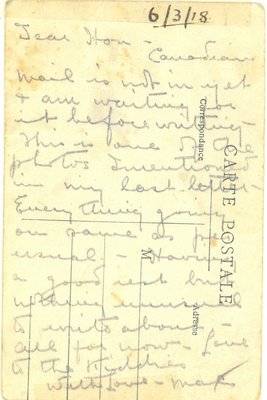 6/3/18
Dear Hon -
Canadian
mail is not in yet
& am waiting for
it before writing -
This is one of
photos I mentioned
in my last letter -
Everything going
on same as per
usual - Having
a good rest but
nothing unusual
to write about -
all for now - Love
to the Kiddies
With Love - Max
CARTE POSTALE
Correspondance
Adresse
M